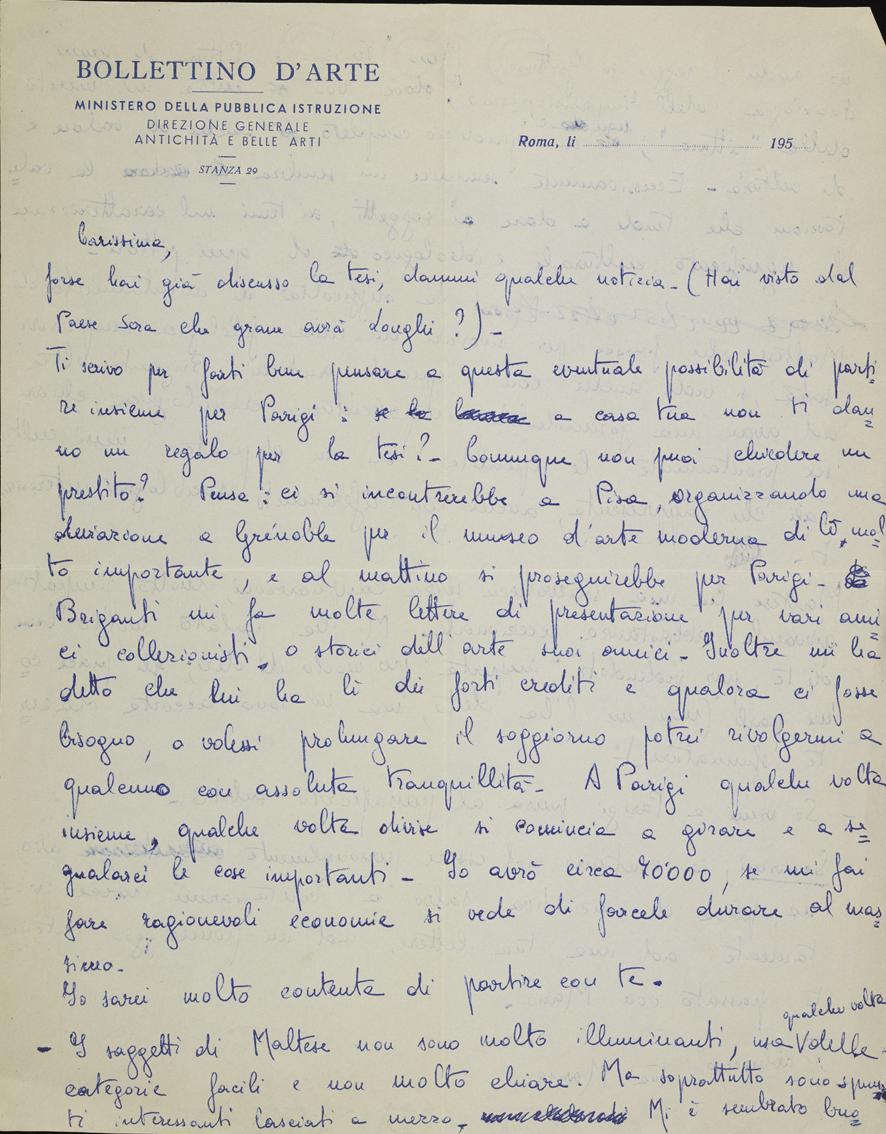 BOLLETTINO D'ARTE
MINISTERO DELLA PUBBLICA ISTRUZIONE
DIREZIONE GENERALE
ANTICHITÀ E BELLE ARTI
STANZA 29
Roma, lì 195
Carissima,
forse hai già discusso la tesi, dammi qualche notizia - (Hai visto dal
Paese Sera che grane avrà Longhi?) -
Ti scrivo per farti bene pensare a questa eventuale possibilità di parti
re insieme per Parigi: a casa tua non ti dan
no un regalo per la tesi? - Comunque non puoi chiedere un
prestito? Pensa: ci si incontrerebbe a Pisa, organizzando una
deviazione a Grénoble per il museo d'arte moderna di lì, mol
to importante, e al mattino si proseguirebbe per Parigi -
Briganti mi fa molte lettere di presentazione per vari ami
ci collezionisti, o storici dell'arte suoi amici - Inoltre mi ha
detto che lui ha lì dei forti crediti e qualora ci fosse
bisogno, o volessi prolungare il soggiorno potrei rivolgermi a
qualcuno con assoluta tranquillità - A Parigi qualche volta
insieme, qualche volta divise si comincia a girare e a se
gnalarci le cose importanti - Io avrò circa 70000, se mi fai
fare ragionevoli economie si vede di farcele durare al mas
simo -
Io sarei molto contenta di partire con te -
qualche volta
- I saggetti di Maltese non sono molto illuminanti, usa
categorie facili e non molto chiare. Ma soprattutto sono spun
ti interessanti lasciati a mezzo, Mi è sembrato buo